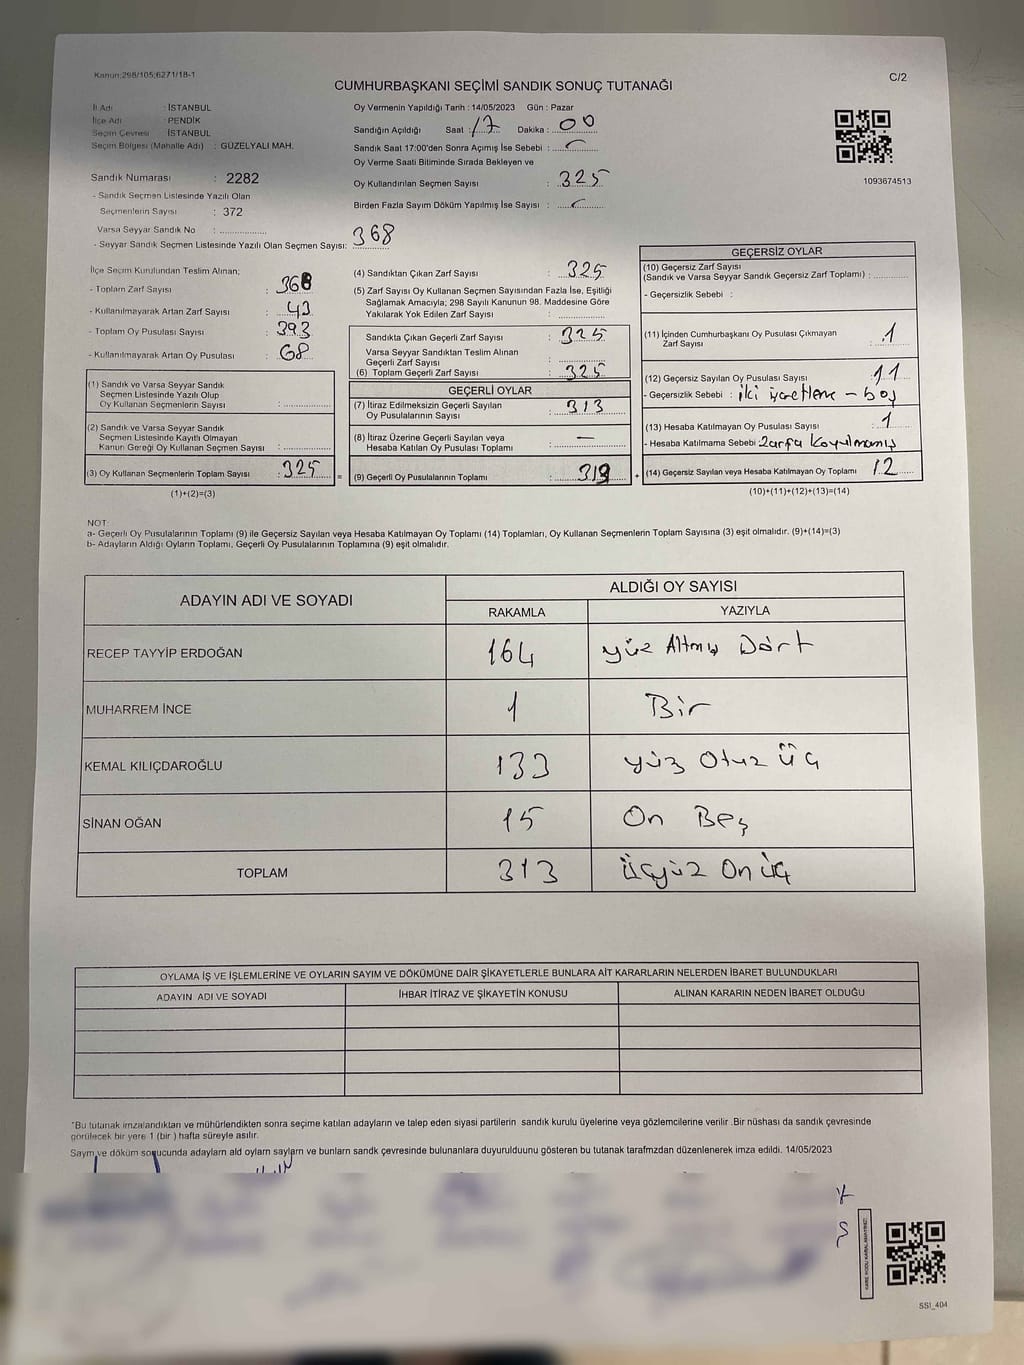 Kanun:298/105;6271/18-1
C/2
CUMHURBAŞKANI SEÇİMİ SANDIK SONUÇ TUTANAĞI
İl Adı : İSTANBUL
İlçe Adı : PENDİK
Seçim Çevresi : İSTANBUL
Seçim Bölgesi (Mahalle Adı) : GÜZELYALI MAH.
Sandık Numarası : 2282
- Sandık Seçmen Listesinde Yazılı Olan
Seçmenlerin Sayısı : 372
Varsa Seyyar Sandık No :
- Seyyar Sandık Seçmen Listesinde Yazılı Olan Seçmen Sayısı: 368
Oy Vermenin Yapıldığı Tarih : 14/05/2023 Gün : Pazar
Sandığın Açıldığı Saat : 17 Dakika : 00
Sandık Saat 17:00'den Sonra Açımış İse Sebebi :
Oy Verme Saati Bitiminde Sırada Bekleyen ve
Oy Kullandırılan Seçmen Sayısı : 325
Birden Fazla Sayım Döküm Yapılmış İse Sayısı :
1093674513
İlçe Seçim Kurulundan Teslim Alınan;
- Toplam Zarf Sayısı : 368
- Kullanılmayarak Artan Zarf Sayısı : 43
- Toplam Oy Pusulası Sayısı : 393
- Kullanılmayarak Artan Oy Pusulası : 68
(1) Sandık ve Varsa Seyyar Sandık
Seçmen Listesinde Yazılı Olup
Oy Kullanan Seçmenlerin Sayısı :
(2) Sandık ve Varsa Seyyar Sandık
Seçmen Listesinde Kayıtlı Olmayan
Kanun Gereği Oy Kullanan Seçmen Sayısı :
(3) Oy Kullanan Seçmenlerin Toplam Sayısı : 325
(1)+(2)=(3)
(4) Sandıktan Çıkan Zarf Sayısı : 325
(5) Zarf Sayısı Oy Kullanan Seçmen Sayısından Fazla İse, Eşitliği
Sağlamak Amacıyla; 298 Sayılı Kanunun 98. Maddesine Göre
Yakılarak Yok Edilen Zarf Sayısı :
Sandıkta Çıkan Geçerli Zarf Sayısı : 325
Varsa Seyyar Sandıktan Teslim Alınan
Geçerli Zarf Sayısı :
(6) Toplam Geçerli Zarf Sayısı : 325
GEÇERLİ OYLAR
(7) İtiraz Edilmeksizin Geçerli Sayılan
Oy Pusulalarının Sayısı : 313
(8) İtiraz Üzerine Geçerli Sayılan veya
Hesaba Katılan Oy Pusulası Toplamı : —
= (9) Geçerli Oy Pusulalarının Toplamı : 313
GEÇERSİZ OYLAR
(10) Geçersiz Zarf Sayısı
(Sandık ve Varsa Seyyar Sandık Geçersiz Zarf Toplamı) :
- Geçersizlik Sebebi :
(11) İçinden Cumhurbaşkanı Oy Pusulası Çıkmayan
Zarf Sayısı : 1
(12) Geçersiz Sayılan Oy Pusulası Sayısı : 11
- Geçersizlik Sebebi : iki işaretleme - boş
(13) Hesaba Katılmayan Oy Pusulası Sayısı : 1
- Hesaba Katılmama Sebebi : Zarfa koyulmamış
+ (14) Geçersiz Sayılan veya Hesaba Katılmayan Oy Toplamı : 12
(10)+(11)+(12)+(13)=(14)
NOT:
a- Geçerli Oy Pusulalarının Toplamı (9) ile Geçersiz Sayılan veya Hesaba Katılmayan Oy Toplamı (14) Toplamları, Oy Kullanan Seçmenlerin Toplam Sayısına (3) eşit olmalıdır. (9)+(14)=(3)
b- Adayların Aldığı Oyların Toplamı, Geçerli Oy Pusulalarının Toplamına (9) eşit olmalıdır.
ADAYIN ADI VE SOYADI
ALDIĞI OY SAYISI
RAKAMLA YAZIYLA
RECEP TAYYİP ERDOĞAN 164 yüz Altmış Dört
MUHARREM İNCE 1 Bir
KEMAL KILIÇDAROĞLU 133 yüz Otuz üç
SİNAN OĞAN 15 On Beş
TOPLAM 313 üçyüz On üç
OYLAMA İŞ VE İŞLEMLERİNE VE OYLARIN SAYIM VE DÖKÜMÜNE DAİR ŞİKAYETLERLE BUNLARA AİT KARARLARIN NELERDEN İBARET BULUNDUKLARI
ADAYIN ADI VE SOYADI İHBAR İTİRAZ VE ŞİKAYETİN KONUSU ALINAN KARARIN NEDEN İBARET OLDUĞU
*Bu tutanak imzalandıktan ve mühürlendikten sonra seçime katılan adayların ve talep eden siyasi partilerin sandık kurulu üyelerine veya gözlemcilerine verilir .Bir nüshası da sandık çevresinde
görülecek bir yere 1 (bir ) hafta süreyle asılır.
Saym ve döküm sonucunda adaylarn ald oylarn saylarn ve bunlarn sandk çevresinde bulunanlara duyurulduunu gösteren bu tutanak tarafmzdan düzenlenerek imza edildi. 14/05/2023
SS1_404